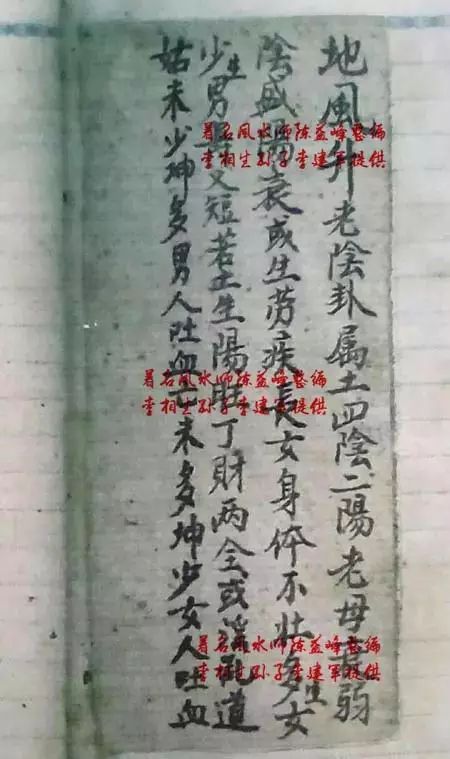 地風升老陰卦属土四陰二陽老母弱
陰盛陽衰或生劳疾長女身体不壮多生女
少生男又短若土生陽胜丁財两全或道
姑未少坤多男人吐血亡未多坤少女人吐血
著名風水師陳益峰整編
李相生孫子李建軍提供
著名風水師陳益峰整編
李相生孫子李建軍提供
著名風水師陳益峰整編
李相生孫子李建軍提供